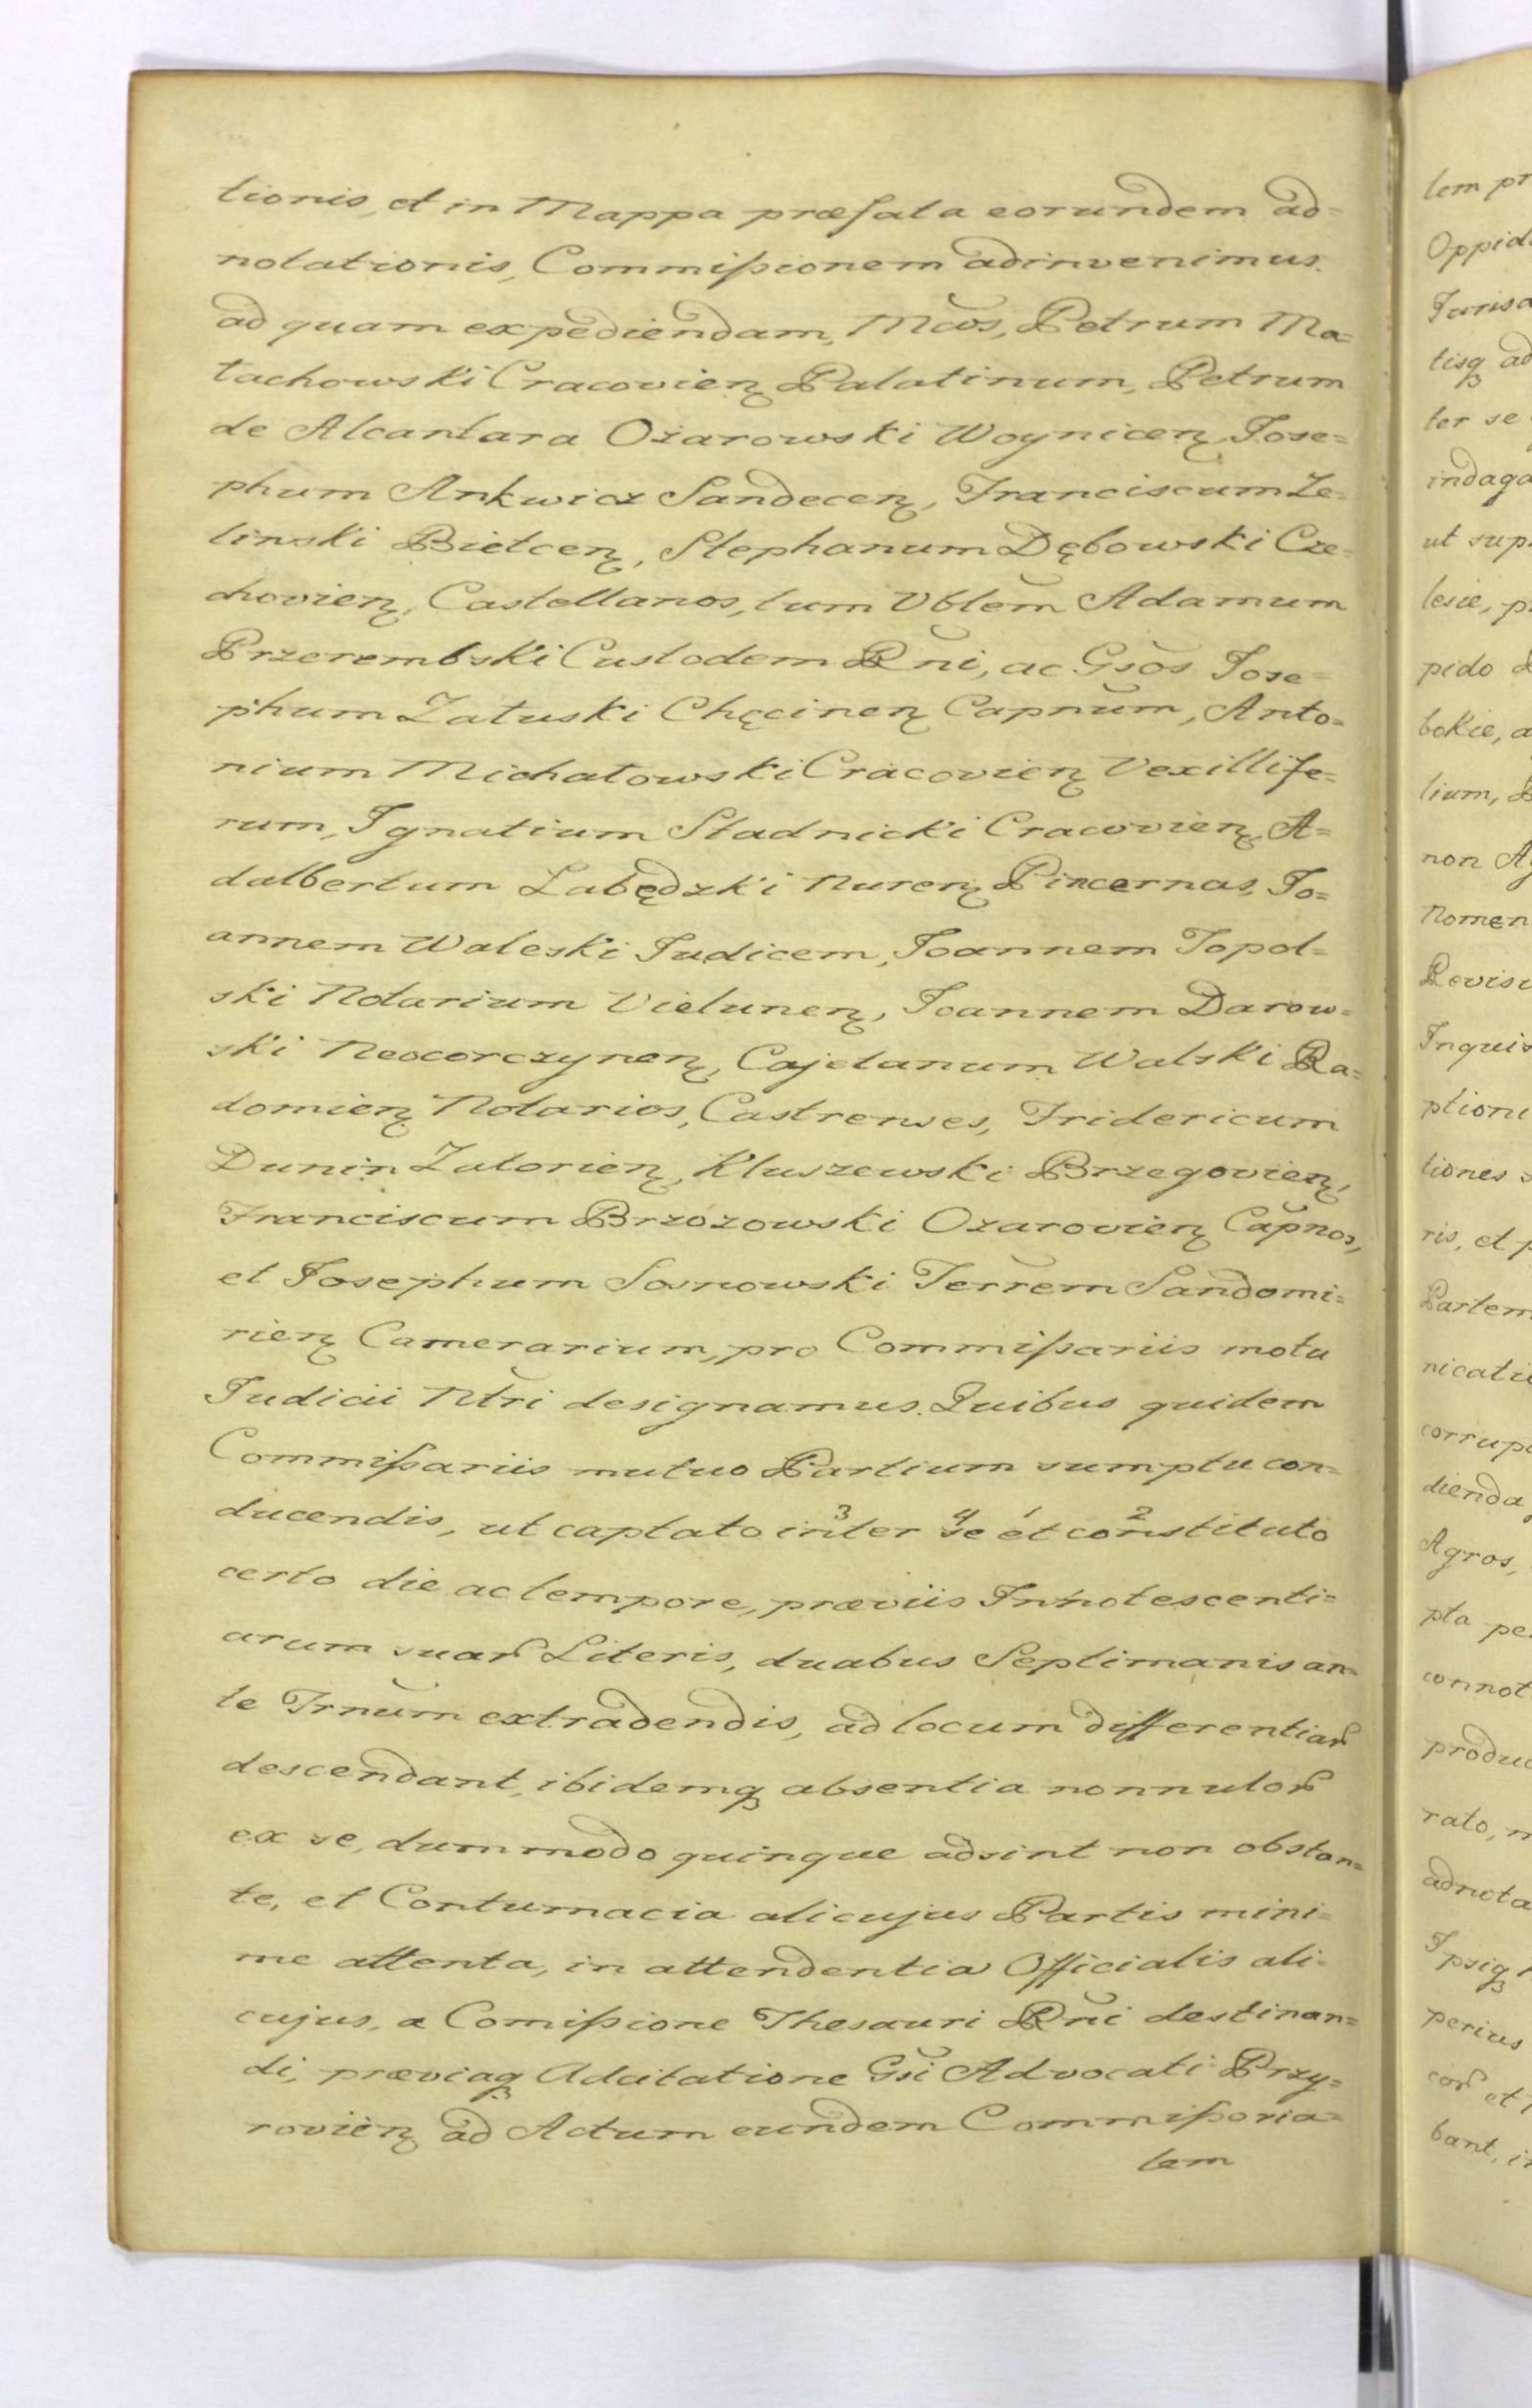 tionis, et in Mappa præfata eorundem ad=
notationis, Commißionem adinvenimus.
ad quam expediendam, Mcos, Petrum Ma=
łachowski Cracovien Palatinum, Petrum
de Alcantara Ożarowski Woynicen, Jose=
phum Ankwicz Sandecen, Franciscum Że=
linski Bietcen, Stephanum Dębowski Cze=
chovien, Castellanos, tum Vblem Adamum
Przerembski Custodem Rni, ac Gsos Jose=
phum Załuski Chęcinen Capnum, Anto=
nium Michałowski Cracovien Vexillife=
rum, Ignatium Stadnicki Cracovien, A=
dalbertum Łabędzki Nuren Pincernas, Jo=
annem Waleski Judicem, Joannem Topol=
ski Notarium Vielunen, Joannem Darow=
ski Neocorczynen, Cajetanum Walski Ra=
domien Notarios, Castrenses, Fridericum
Dunin Zatorien, Kluszewski Brzegovien,
Franciscum Brzozowski Ozarovien Capnos,
et Josephum Sosnowski Terrem Sandomi=
rien Camerarium, pro Commißariis motu
Judicii Ntri designamus. Quibus quidem
Commißariis mutuo Partium sumptu con=
ducendis, ut captato inter se et constituto
3 4 1 2
certo die ac tempore, præviis Innotescenti=
arum suar Literis, duabus Septimanis an=
te Trnum extradendis, ad locum differentiar
descendant, ibidemq absentia nonnulor
ex se, dummodo quinque adsint non obstan=
te, et Contumacia alicujus Partis mini=
me attenta, in attendentia Officialis ali=
cujus, a Comißione Thesauri Rni destinan=
di, præviaq Adcitatione Gsi Advocati Przy=
rovien ad Actum eundem Commißoria=
lem
lem pr
Oppid
Jurisd
tisq ad
ter se
indaga
ut sup
lesiæ, p
pido
bokie, a
lium,
non A
Nomen
Revis
Inquis
ption
tiones
ris, et
Partem
nicati
corrup
dienda
Agros,
pta pe
connot
produc
rato, n
adnota
Ipsiq
perius
cor et
bant, i